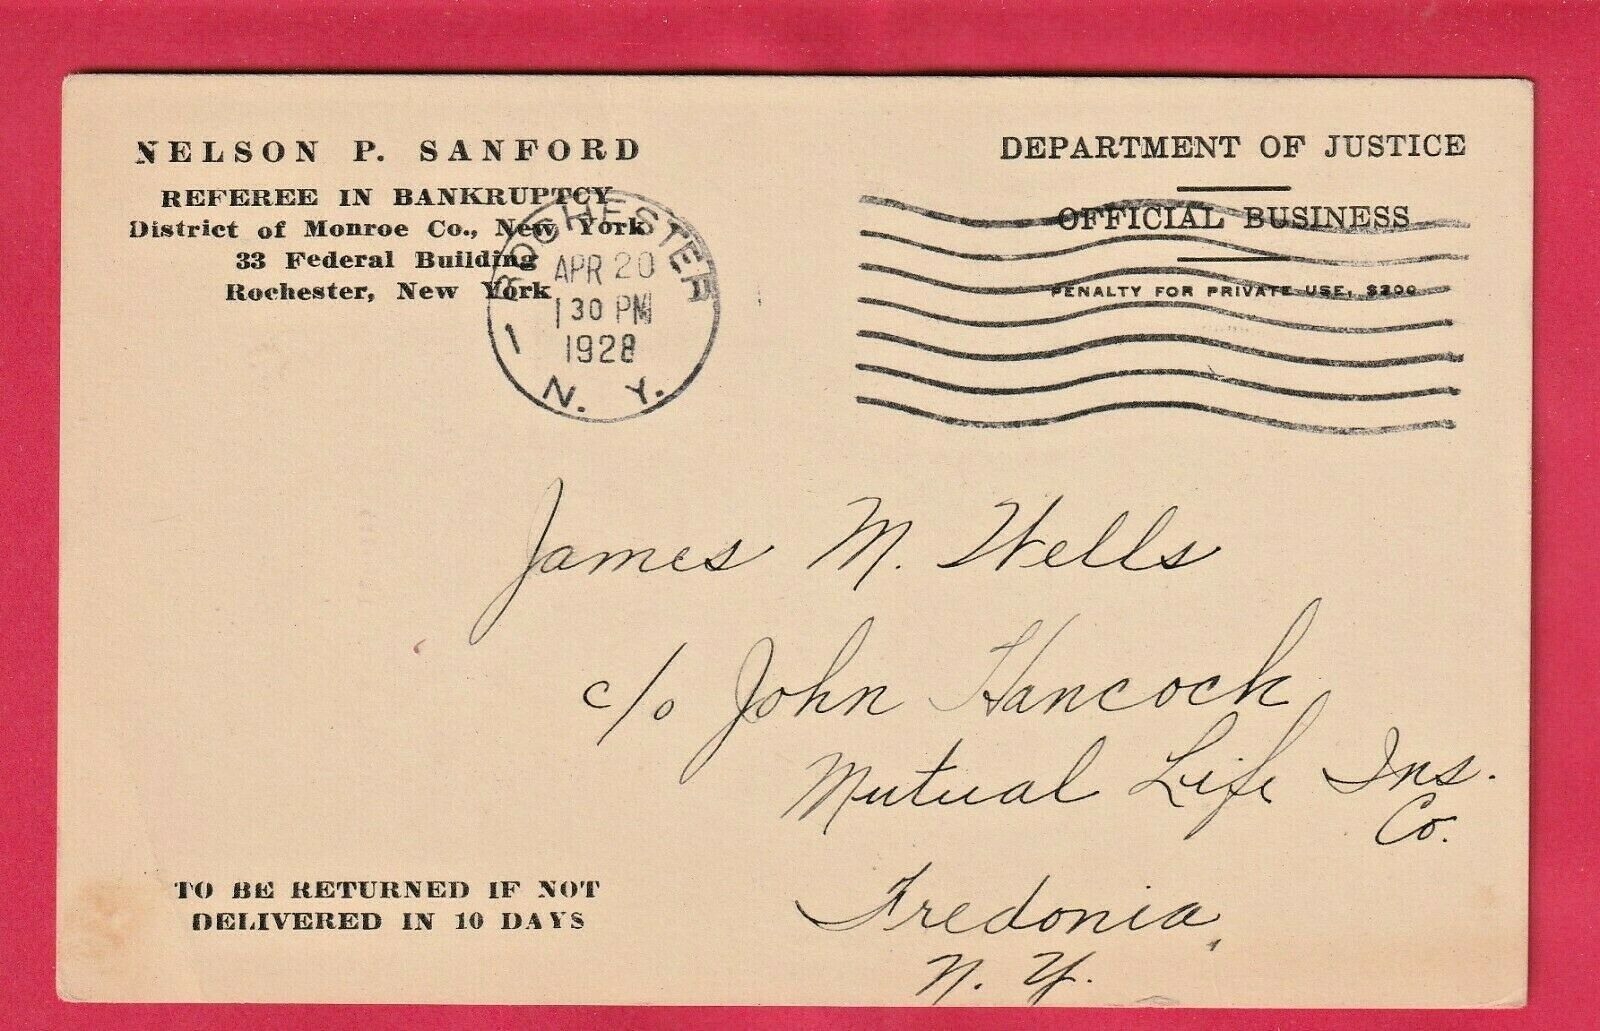 NELSON P. SANFORD
REFEREE IN BANKRUPTCY
District of Monroe Co., New York
33 Federal Building
Rochester, New York
ROCHESTER
APR 20
1 30 PM
1928
1
N. Y.
DEPARTMENT OF JUSTICE
OFFICIAL BUSINESS
PENALTY FOR PRIVATE USE, $300
James M. Wells
c/o John Hancock
Mutual Life Ins.
Co.
Fredonia,
N. Y.
TO BE RETURNED IF NOT
DELIVERED IN 10 DAYS